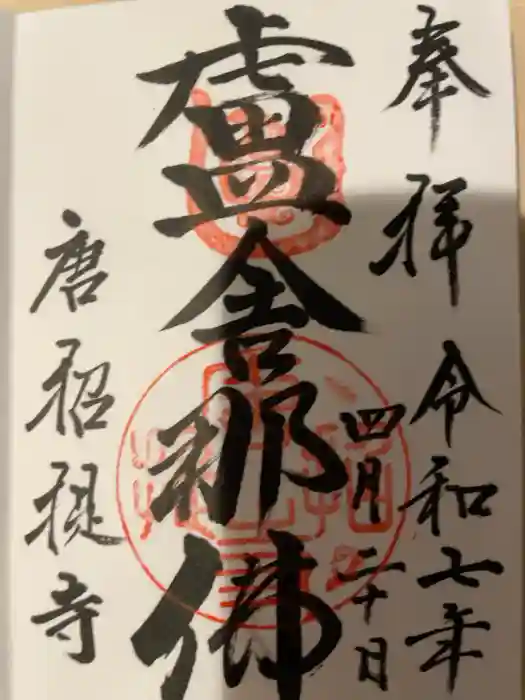 奉拝 令和七年
四月二十日
盧舎那佛
唐招提寺